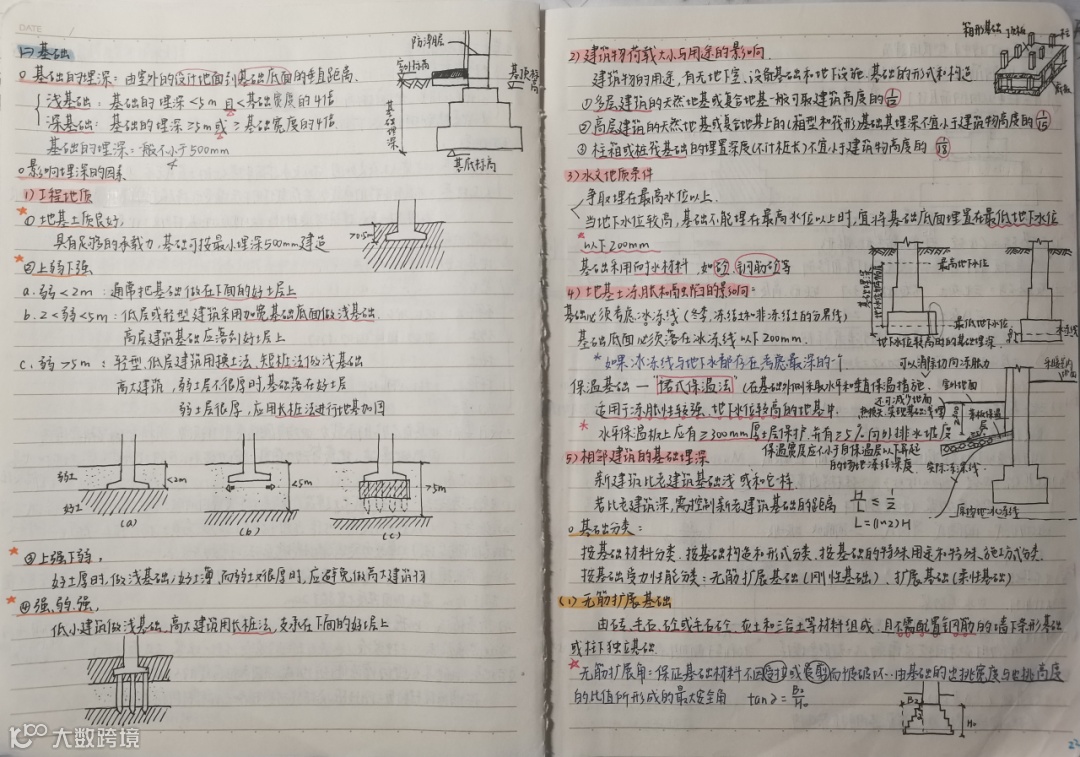 DATE
(二)基础
o 基础的埋深：由室外的设计地面到基础底面的垂直距离.
浅基础：基础的埋深<5m 且<基础宽度的4倍
深基础：基础的埋深≥5m或≥基础宽度的4倍
基础的埋深一般不小于500mm
防潮层
基础埋深
基底标高
o 影响埋深的因素
1) 工程地质
* ① 地基土质良好,
具有足够的承载力,基础可按最小埋深500mm建造
>0.5m
* ② 上弱下强
a. 弱<2m：通常把基础做在下面的好土层上
b. 2<弱<5m：低层或轻型建筑采用加宽基础底面做浅基础.
高层建筑基础应落到好土层上
c. 弱>5m：轻型,低层建筑用换土法,短桩法做浅基础
高大建筑,弱土层不很厚时,基础落在好土层
弱土层很厚,应用长桩法进行地基加固
弱土
好土
<2m
<5m
>5m
(a)
(b)
(c)
* ③ 上强下弱,
好土厚时,做浅基础;好土薄,而弱土又很厚时,应避免做高大建筑物
* ④ 强、弱、强,
低小建筑做浅基础,高大建筑用长桩法,支承在下面的好层上
2) 建筑物荷载大小与用途的影响
箱形基础
建筑物的用途,有无地下室、设备基础和地下设施.基础的形式和构造
① 多层建筑的天然地基或复合地基一般可取建筑高度的 1/12
② 高层建筑的天然地基或复合地基上的(箱型和筏形基础其埋深不宜小于建筑物高度的 1/15
③ 桩箱或桩筏基础的埋置深度(不计桩长)不宜小于建筑物高度的 1/18
3) 水文地质条件
争取埋在最高水位以上.
当地下水位较高,基础不能埋在最高水位以上时,宜将基础底面埋置在最低地下水位
* 以下200mm
基础采用耐水材料.如砼、钢筋砼等
最高地下水位
最低地下水位
地下水位较高时的基础埋深
冰冻线
4) 地基土冻胀和高出陷的影响：
基础必须考虑冰冻线 (冬季,冻结土和非冻结土的分界线)
基础底面必须落在冰冻线以下200mm.
*如果冰冻线与地下水都存在考虑最深的一个
可以消除切向冻胀力
保温基础 — "堵式保温法" (在基础外侧采取水平和垂直保温措施.
适用于冻胀性较强、地下水位较高的地基中.
还可减少地面
热损失,实现基础浅埋
室外地面
* 水平保温板上应有≥300mm厚土层保护,并有≥5%向外排水坡度
保温宽度应不小于自保温层以下算起
的场地冻结深度
实际冻深线
原场地冰冻线
5) 相邻建筑的基础埋深
新建筑比老建筑基础浅 或和它一样
若比老建筑深,需控制新老建筑基础的距离 H/L ≤ 1/2
L=(1~2)H
o 基础分类：
按基础材料分类、按基础构造和形式分类、按基础的特殊用途和特殊施工方式分类.
按基础受力性能分类：无筋扩展基础(刚性基础)、扩展基础(柔性基础)
(1) 无筋扩展基础
由砖、毛石、砼或毛石砼、灰土和三合土等材料组成,且不需配置钢筋的墙下条形基础
或柱下独立基础.
* 无筋扩展角：保证基础材料不因受拉或受剪而被破坏.由基础的出挑宽度与出挑高度
的比值所形成的最大安全角 tanα = B₂/H₀
B₂
H₀
大数跨境